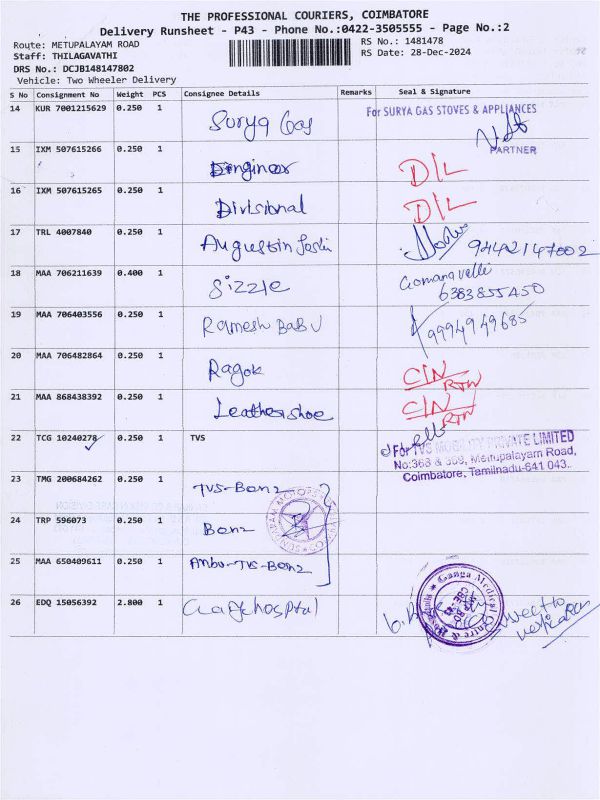 THE PROFESSIONAL COURIERS, COIMBATORE
Delivery Runsheet - P43 - Phone No.:0422-3505555 - Page No.:2
Route: METUPALAYAM ROAD RS No.: 1481478
Staff: THILAGAVATHI RS Date: 28-Dec-2024
DRS No.: DCJB148147802
Vehicle: Two Wheeler Delivery
S No Consignment No Weight PCS Consignee Details Remarks Seal & Signature
14 KUR 7001215629 0.250 1 Surya Gas For SURYA GAS STOVES & APPLIANCES
PARTNER
15 IXM 507615266 0.250 1 Engineer D/L
16 IXM 507615265 0.250 1 Divisional D/L
17 TRL 4007840 0.250 1 Augustin 9442147002
18 MAA 706211639 0.400 1 Sizzle Gomanavelli
6383855450
19 MAA 706403556 0.250 1 Ramesh BABU 9994949685
20 MAA 706482864 0.250 1 Ragok C/N
RTN
21 MAA 868438392 0.250 1 Leathershoe C/N
RTN
22 TCG 10240278 0.250 1 TVS For TVS MOBILITY PRIVATE LIMITED
No:368 & 369, Mettupalayam Road,
Coimbatore, Tamilnadu-641 043.
23 TMG 200684262 0.250 1 TVS-Benz
24 TRP 596073 0.250 1 Benz
25 MAA 650409611 0.250 1 Ambu-TVS-Benz
26 EDQ 15056392 2.800 1 Ganga Medical Centre &